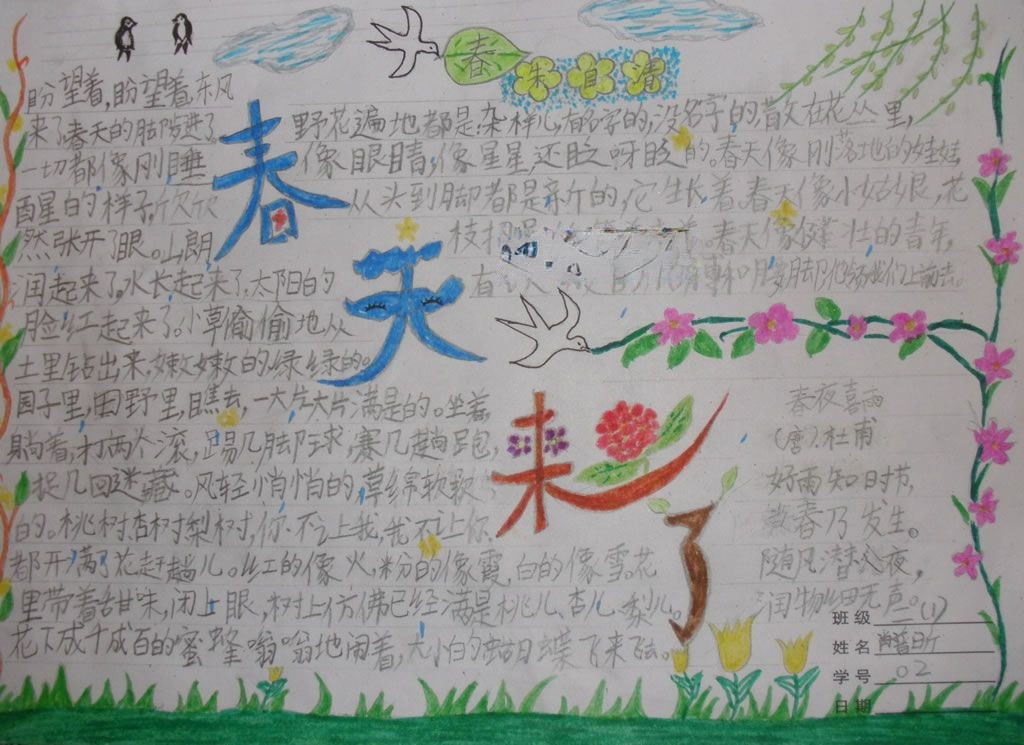 春
朱自清
春天来了
盼望着,盼望着,东风
来了,春天的脚步近了
一切都像刚睡
醒的样子,欣欣
然张开了眼。山朗
润起来了,水长起来了,太阳的
脸红起来了。小草偷偷地从
土里钻出来,嫩嫩的,绿绿的。
园子里,田野里,瞧去,一大片大片,满是的。坐着,
躺着,打两个滚,踢几脚球,赛几趟跑,
捉几回迷藏。风轻悄悄的,草绵软软
的。桃树,杏树,梨树,你不让我,我不让你,
都开满了花赶趟儿。红的像火,粉的像霞,白的像雪。花
里带着甜味,闭上眼,树上仿佛已经满是桃儿,杏儿,梨儿。
花下成千成百的蜜蜂嗡嗡地闹着,大小的蝴蝶飞来飞去。
野花遍地都是,杂样儿,有名字的,没名字的,散在花丛里,
像眼睛,像星星,还眨呀眨的。春天像刚落地的娃娃
从头到脚都是新的,它生长着,春天像小姑娘,花
枝招 。春天像健壮的青年,
有 们上前去。
春夜喜雨
(唐).杜甫
好雨知时节,
春乃发生。
随风潜入夜,
润物细无声。
班级 一(1)
姓名
学号 02
日期